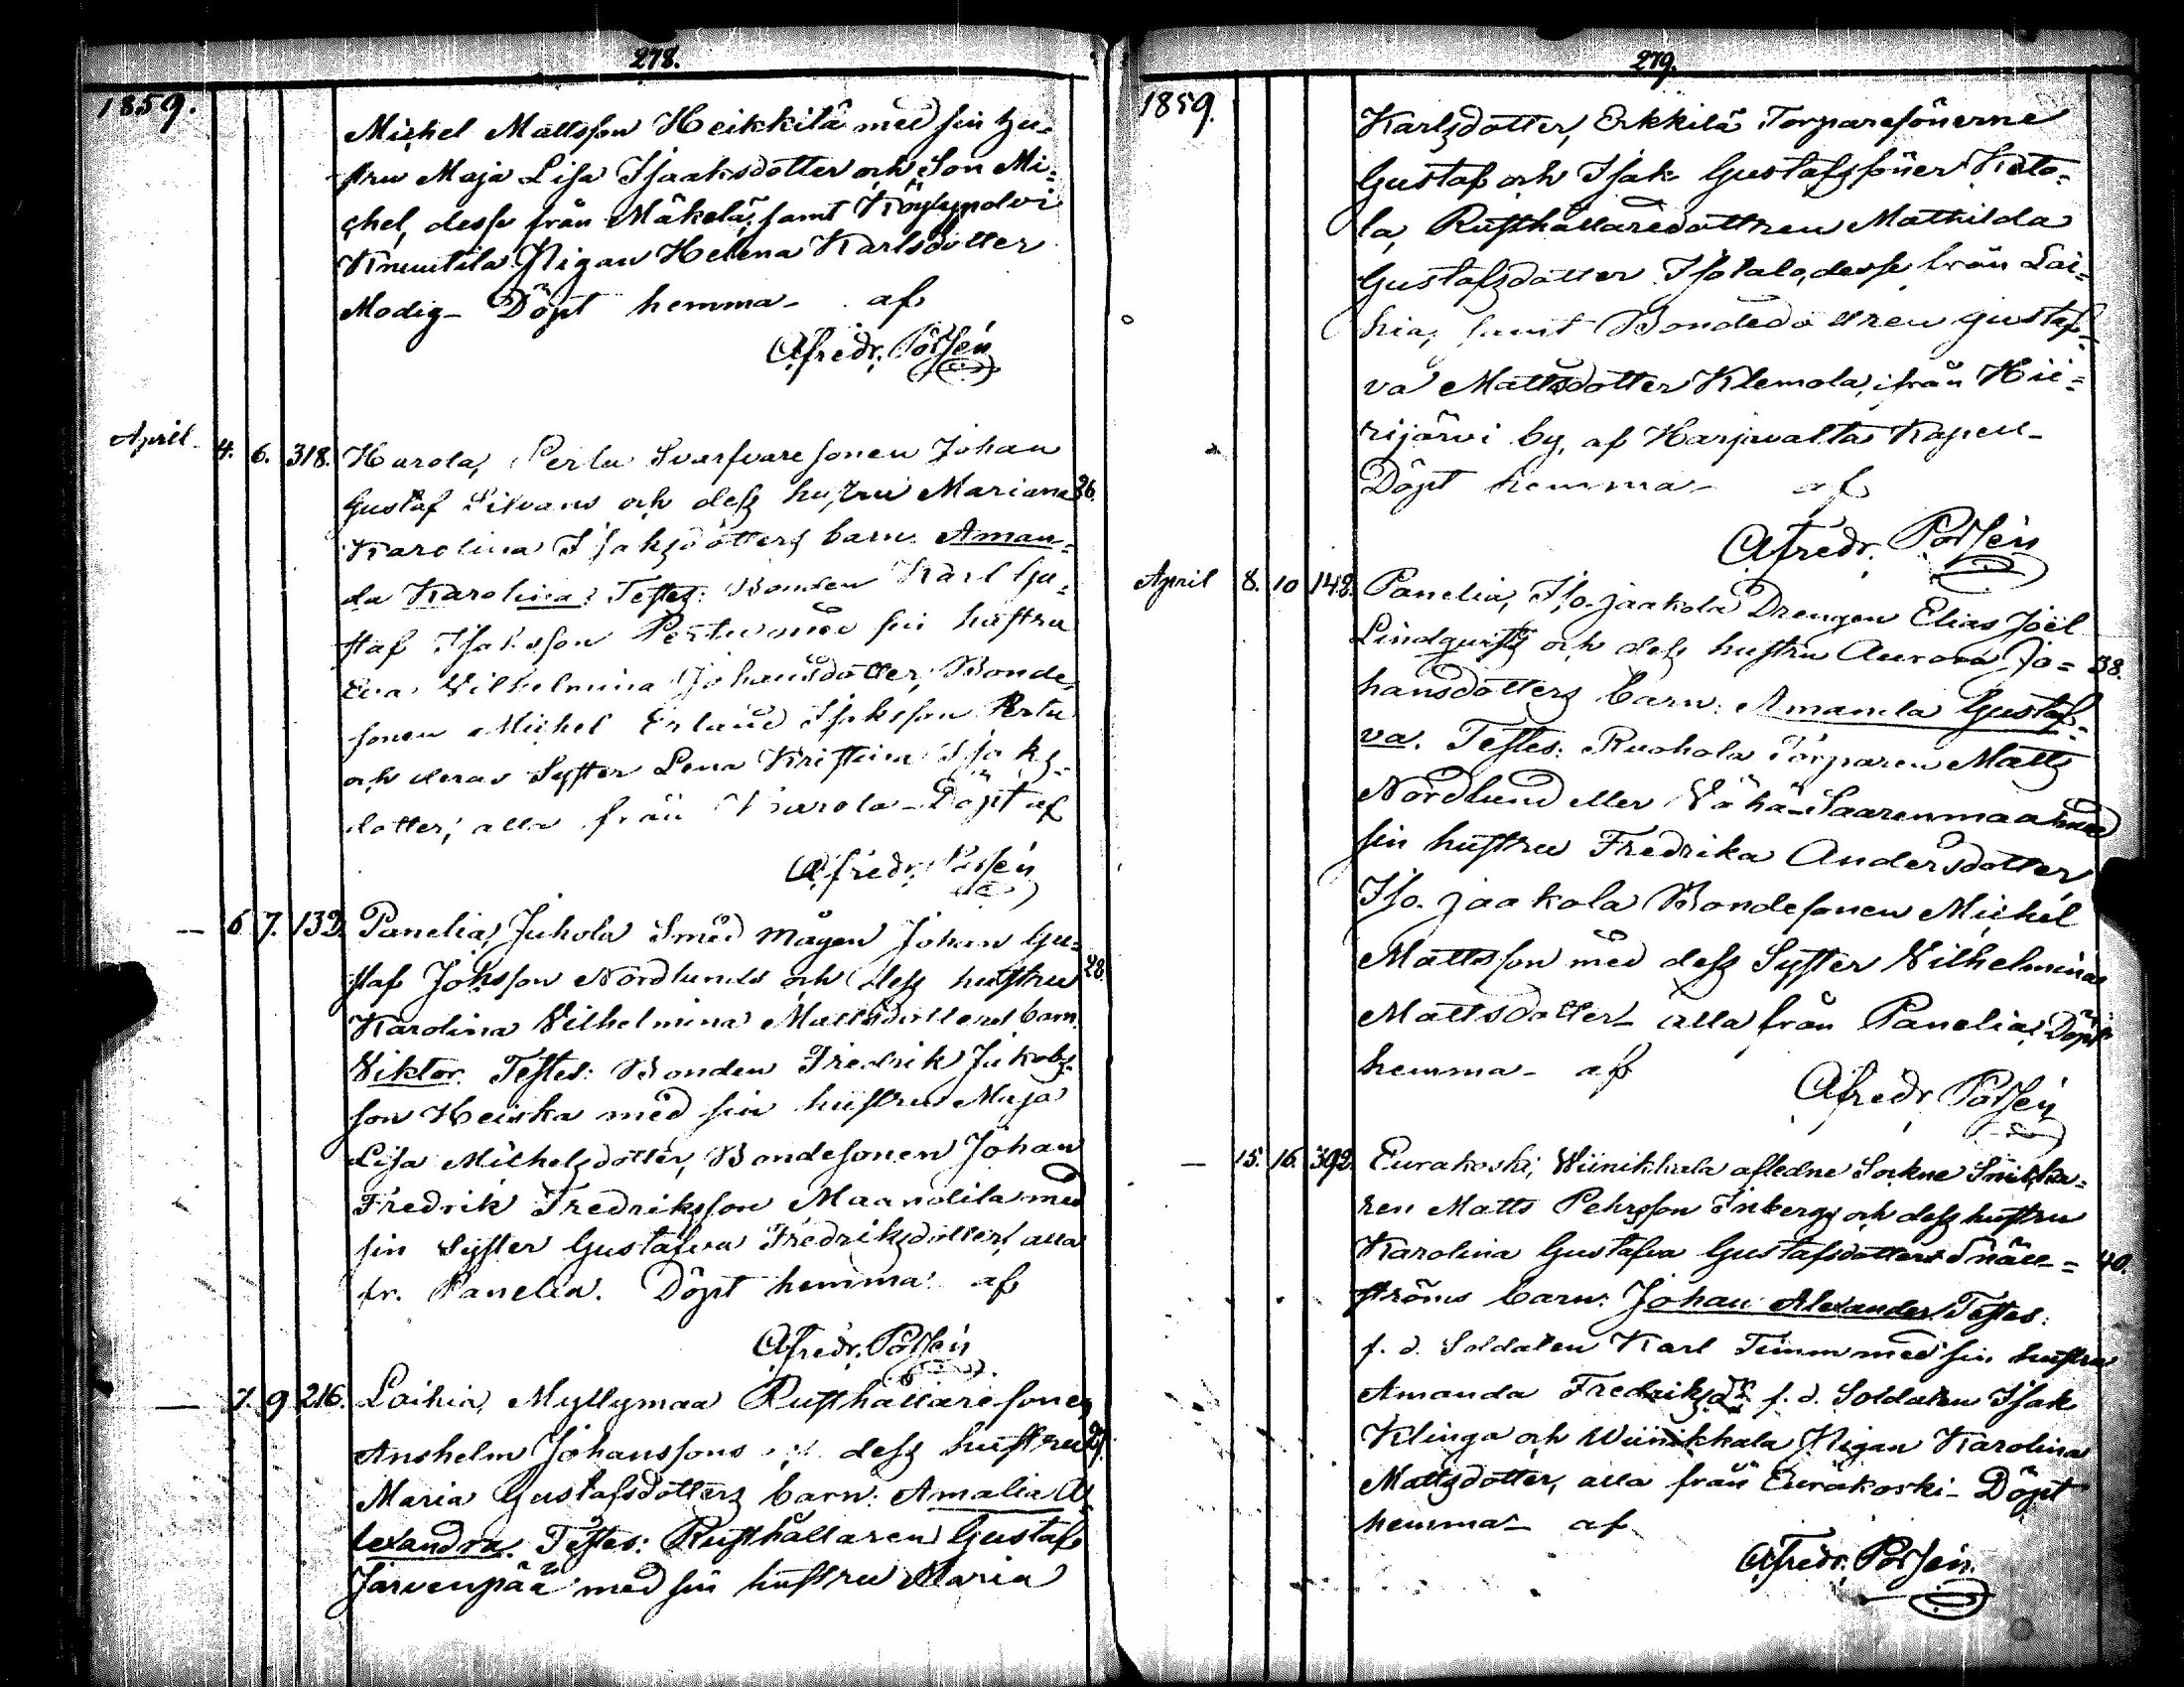 278.
1859.
Michel Mattsson Heikkilä med sin hu-
stru Maja Lisa Isaaksdotter och Son Mi-
chel, desse från Mäkelä, samt Köylypolvi
Knuutila Pigan Helena Karlsdotter
Modig – Döpt hemma – af
Afredr. Polsén
April 4. 6. 318. Harola, Pertu Svarfvaresonen Johan
Gustaf Silvans och dess hustru Mariana 26.
Karolina Isaksdotters barn: Aman-
da Karolina: Testes: Bonden Karl Gu-
staf Isaksson Pertu med sin hustru
Eva Vilhelmina Johansdotter, Bonde-
sonen Michel Erland Isaksson Pertu
och deras Syster Lena Kristina Isaks-
dotter; alla från Harola – Döpt af
Afredr. Polsén
— 6 7. 132. Panelia, Juhola Smed mågen Johan Gu-
staf Johsson Nordlunds och dess hustru 28.
Karolina Vilhelmina Mattsdotters barn
Viktor. Testes: Bonden Fredrik Jakobs-
son Heiska med sin hustru Maja
Lisa Michelsdotter, Bondesonen Johan
Fredrik Fredriksson Maanolila med
sin Syster Gustafva Fredriksdotter, alla
fr. Panelia. Döpt hemma af
Afredr. Polsén
— 7. 9 216. Laihia, Myllymaa Rusthållaresonen
Anshelm Johanssons och dess hustru 27.
Maria Gustafsdotters barn: Amalia A-
lexandra. Testes: Rusthållaren Gustaf
Järvenpää med sin hustru Maria
279.
1859.
Karlsdotter, Erkkilä Torparesönerne
Gustaf och Isak Gustafssöner Keto-
la, Rusthållaredottren Mathilda
Gustafsdotter Isotalo, desse från Lai-
hia, samt Bondedottren Gustaf-
va Mattsdotter Klemola, ifrån Hii-
rijärvi by, af Harjavalta Kapell –
Döpt hemma – af
Afredr. Polsén
April 8. 10 148. Panelia, Iso-jaakola Drengen Elias Joel
Lindqvists och dess hustru Aurora Jo- 38.
hansdotters barn: Amanda Gustaf-
va. Testes: Ruohola Torparen Matts
Nordlund eller Vähä-Saarenmaa med
sin hustru Fredrika Andersdotter,
Iso-jaakola Bondesonen Michel
Mattsson med dess Syster Vilhelmina
Mattsdotter – alla från Panelia. Döpt
hemma – af
Afredr. Polsén
— 15. 16. 392. Eurakoski, Wiinikkala aflidne Sockne Snicka-
ren Matts Pehrsson Inbergs och dess hustru
Karolina Gustafva Gustafsdotters Snäll- 40.
ströms barn: Johan Alexander Testes:
f. d. Soldaten Karl Timm med sin hustru
Amanda Fredriksdr f. d. Soldaten Isak
Klinga och Wiinikkala Pigan Karolina
Mattsdotter, alla från Eurakoski – Döpt
hemma – af
Afredr. Polsén.